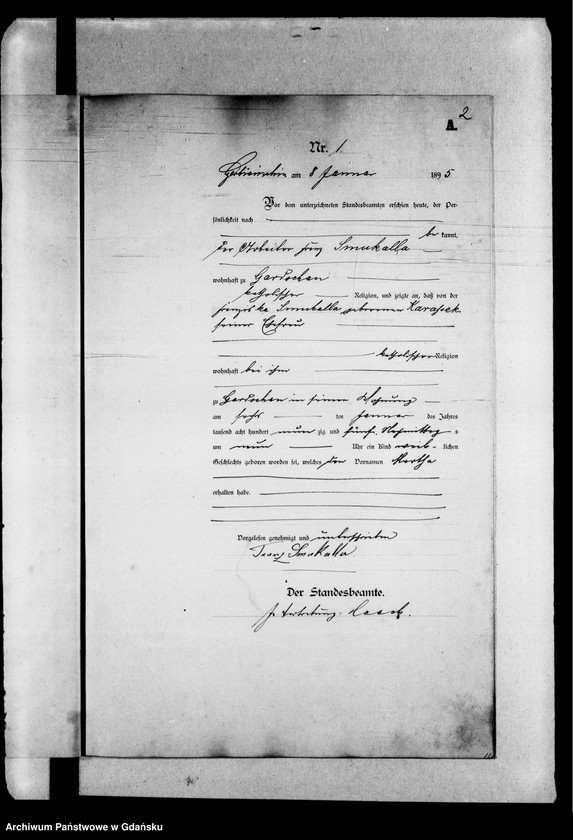 2
A.
Nr. 1
am 8 Januar 1895
Vor dem unterzeichneten Standesbeamten erschien heute, der Per-
sönlichkeit nach
be kannt,
der Arbeiter Franz Smukalla
wohnhaft zu Gardschau
katholischer Religion, und zeigte an, daß von der
Franziska Smukalla geborenen Karaseck
seiner Ehefrau
katholischer Religion
wohnhaft bei ihm
zu Gardschau in seiner Wohnung
am sechs ten Januar des Jahres
tausend acht hundert neun zig und fünf, Nachmittag s
um neun Uhr ein Kind weib- lichen
Geschlechts geboren worden sei, welches den Vornamen Martha
erhalten habe.
Vorgelesen genehmigt und unterschrieben
Franz Smukalla
Der Standesbeamte.
In Vertretung.
Archiwum Państwowe w Gdańsku